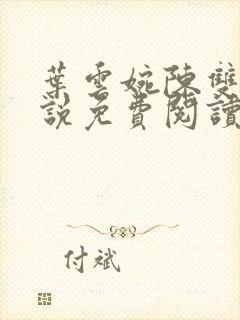 葉雲婉陳雙
說免費閱讀
付斌